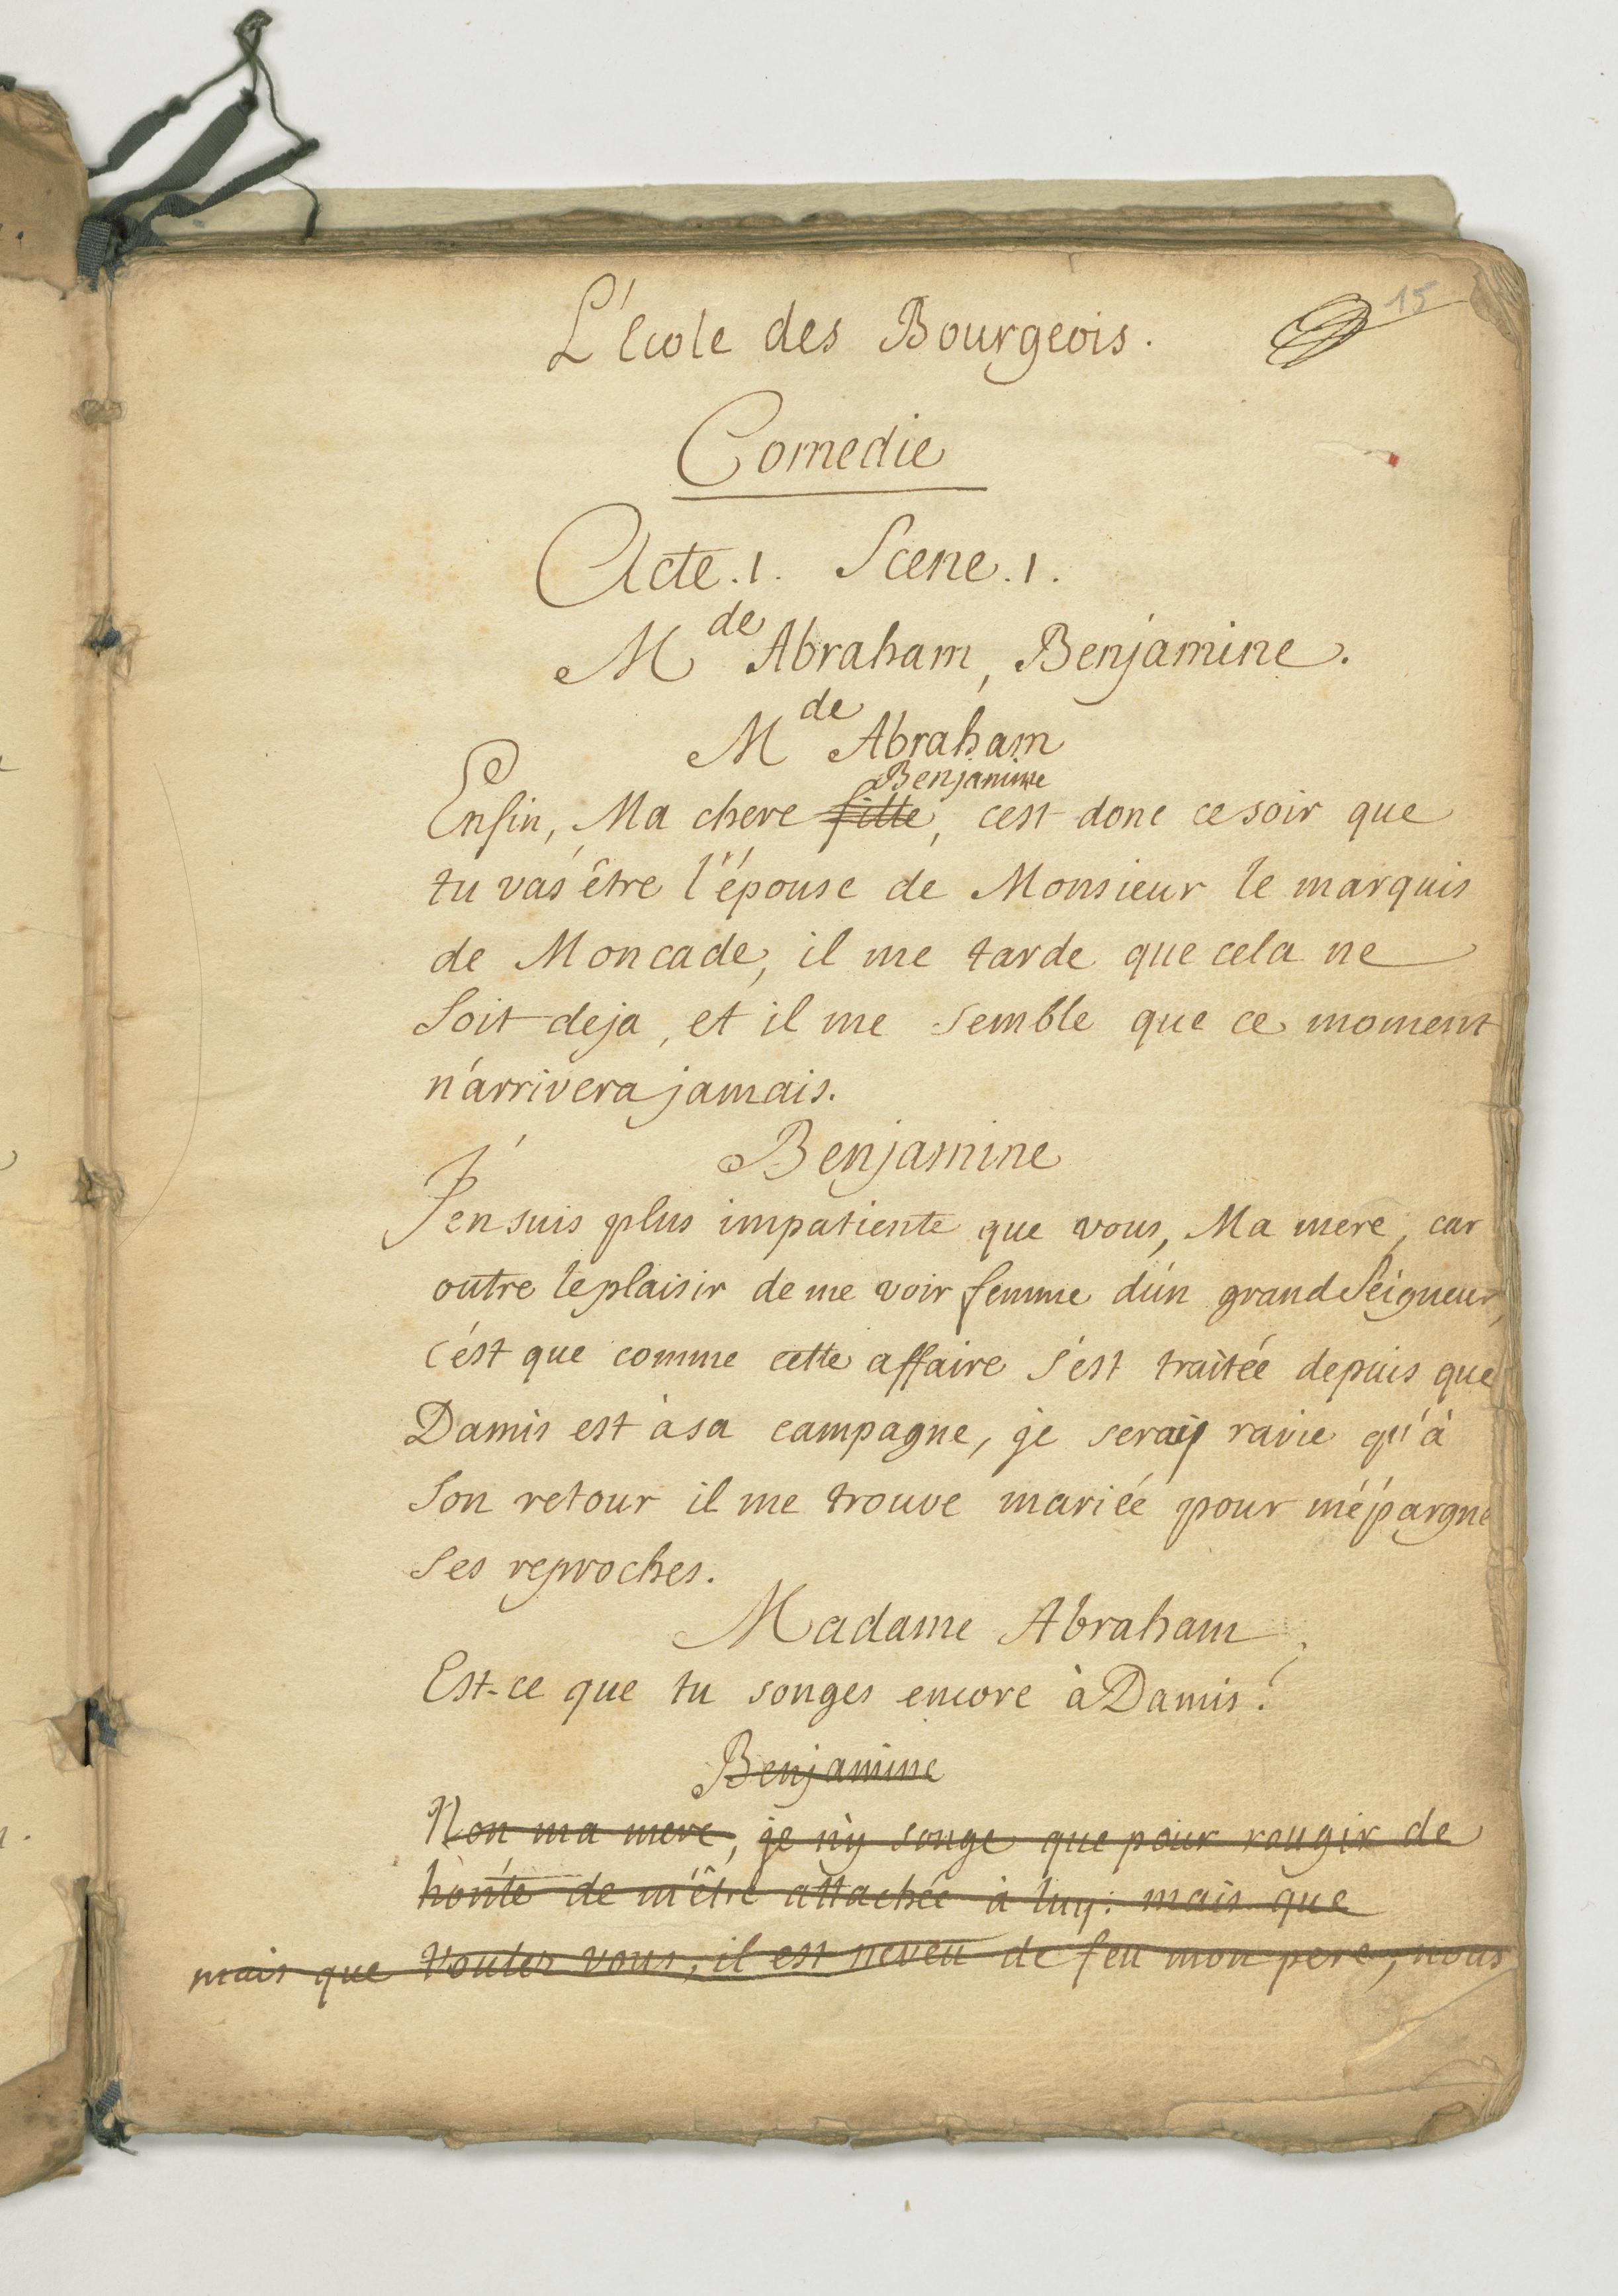 15
L'école des Bourgeois.
Comedie
Acte. 1. Scene. 1.
Mde Abraham, Benjamine.
Mde Abraham
Benjamine
Enfin, Ma chere fille, cest donc ce soir que
tu vas être l'épouse de Monsieur le marquis
de Moncade, il me tarde que cela ne
soit deja, et il me semble que ce moment
n'arrivera jamais.
Benjamine
J'en suis plus impatiente que vous, Ma mere, car
outre le plaisir de me voir femme d'un grand Seigneur,
c'est que comme cette affaire s'est traitée depuis que
Damis est à sa campagne, je serais ravie qu'à
son retour il me trouve mariée pour m'épargne
ses reproches.
Madame Abraham
Est-ce que tu songes encore à Damis?
Benjamine
Non ma mere, je n'y songe que pour rougir de
honte de m'être attachée à luy: mais que
mais que voulez vous, il est neveu de feu mon pere, nous